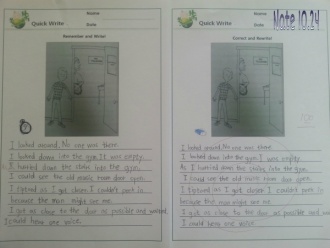 Name
Quick Write
Date
Remember and Write!
I looked around. No one was there.
I looked down into the gym. It was empty.
I hurried down the stairs into the gym.
I could see the old music room door open.
I tiptoed as I got closer. I couldn't peek in
because the man might see me.
I got as close to the door as possible and waited.
I could hear one voice.
Name
Note 10.24
Quick Write
Date
Correct and Rewrite!
I looked around. No one was there.
I looked down into the gym. It was empty.
I hurried down the stairs into the gym.
I could see the old music room door open.
I tiptoed as I got closer. I couldn't peek in
because the man might see me.
I got as close to the door as possible and
I could hear one voice.